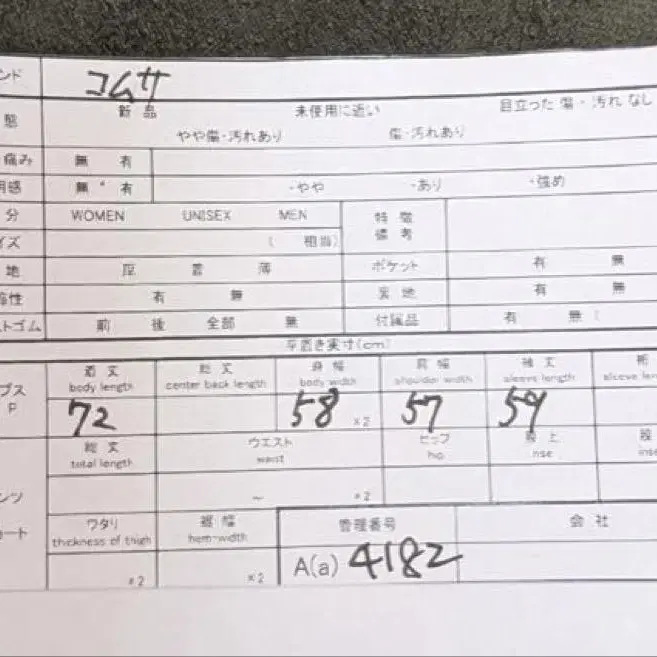 ンド コムサ
態 新 品 未使用に近い 目立った 傷・汚れ なし
やや傷・汚れあり 傷・汚れあり
痛み 無 有
用感 無 有 ・やや ・あり ・強め
分 WOMEN UNISEX MEN 特 徴
備 考
イズ ( 相当)
地 厚 普 薄 ポケット 有 無
有 無 裏 地 有 無
ストゴム 前 後 全部 無 付属品 有 無 (
平置き実寸(cm)
着 丈 総 丈 身 幅 肩 幅 袖 丈 裄
body length center back length body width shoulder width sleeve length
プス
72 58 ×2 57 59
総 丈 ウエスト ヒップ 股 上 股
total length waist hip
ンツ ~ ×2
ワタリ 裾 幅 管理番号 会 社
thickness of thigh hem-width
×2 ×2 A(a) 4182